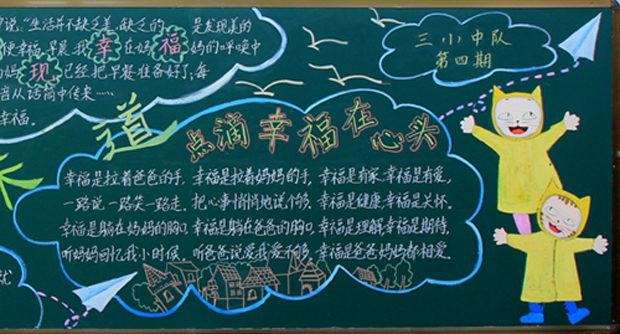 说:“生活并不缺乏美,缺乏的 是发现美的
便幸福.早晨我幸在妈福妈的呼唤中
妈现,已经把早餐准备好了;每
当从话筒中传来……
幸福.
道
点滴幸福在心头
三(小)中队
第四期
幸福是拉着爸爸的手,幸福是拉着妈妈的手,幸福是有家,幸福是有爱,
一路说一路笑一路走.把心事悄悄地说个够,幸福是健康幸福是关怀.
幸福是躺在妈妈的胸口,幸福是躺在爸爸的胸口,幸福是理解幸福是期待,
听妈妈回忆我小时候.听爸爸说爱我爱不够.幸福是爸爸妈妈都相爱.